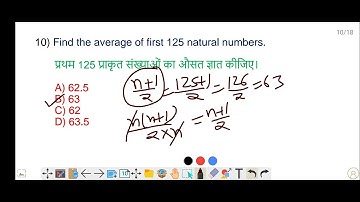 10/18
10) Find the average of first 125 natural numbers.
प्रथम 125 प्राकृत संख्याओं का औसत ज्ञात कीजिए।
A) 62.5
B) 63
C) 62
D) 63.5
n+1/2 = 125+1/2 = 126/2 = 63
n(n+1)/2×n = n+1/2